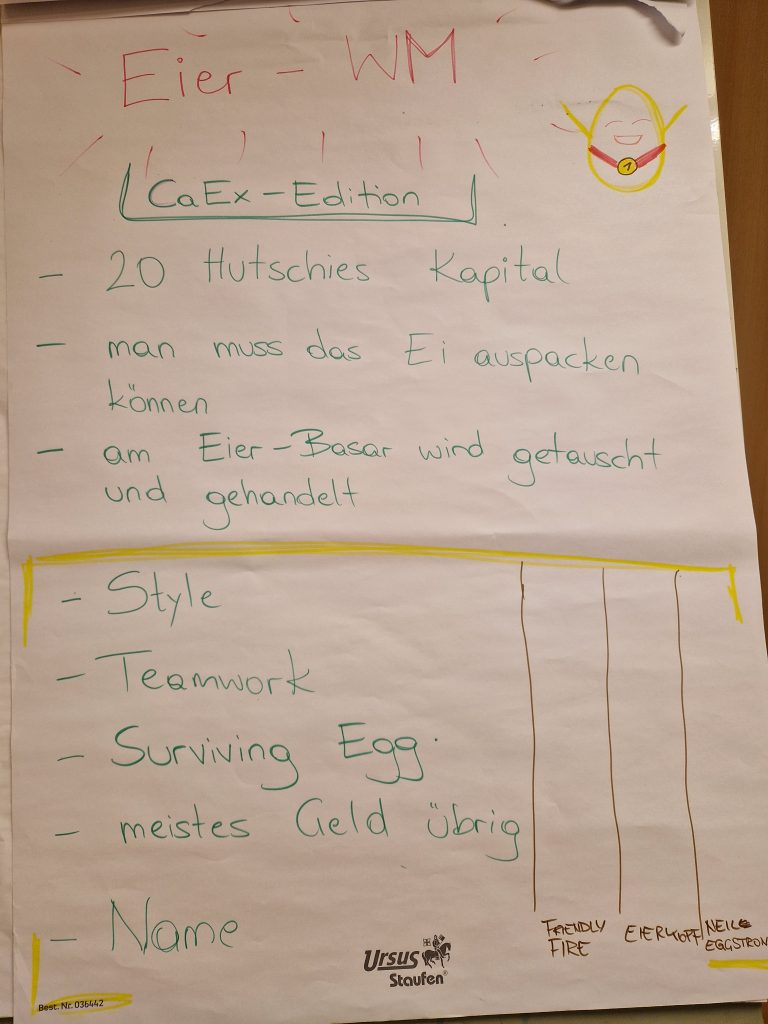 Eier - WM
1
CaEx - Edition
- 20 Hutschies Kapital
- man muss das Ei auspacken
können
- am Eier-Basar wird getauscht
und gehandelt
- Style
- Teamwork
- Surviving Egg
- meistes Geld übrig
- Name
FRIENDLY
FIRE
EIERKOPF
NEIL
EGGSTRON
Ursus
Staufen®
Best. Nr. 036442